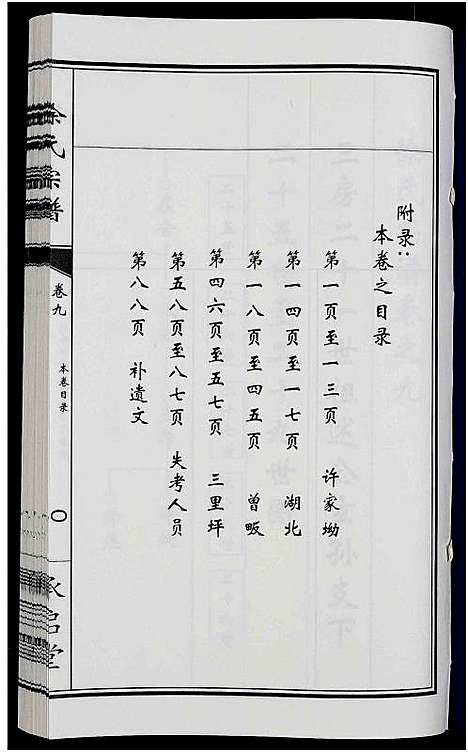 附录：
本卷之目录
第一页至一三页 许家坳
第一四页至一七页 湖北
第一八页至四五页 曾畈
第四六页至五七页 三里坪
第五八页至八七页 失考人员
第八八页 补遗文
徐氏宗谱
卷九
本卷目录
〇
承启堂